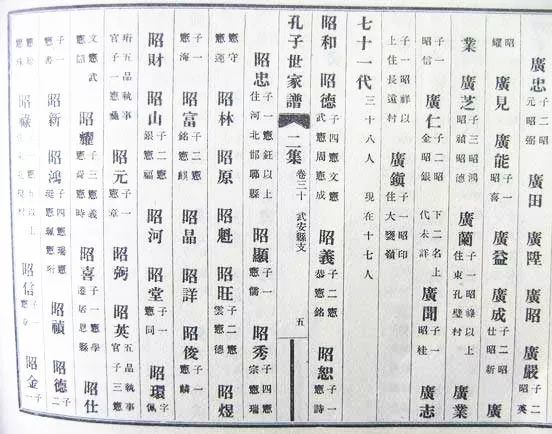 廣忠 子二昭元昭弼 廣田 廣陞 廣昭 廣嚴 子二昭英
昭耀 廣見 廣能 子一昭喜 廣益 廣成 子二昭仕昭新 廣
業 廣芝 子三昭鴻昭禎昭德 廣蘭 子一昭祿以上住東孔壁村 廣業
子一昭信 廣仁 子二昭金昭銀 下二名上代未詳 廣聞 子一昭桂 廣志
子一昭祥以上住長遠村 廣鎮 子一昭印住大甕嶺
七十一代 三十八人 現在十七人
昭和 昭德 子四憲文憲武憲周憲成 昭義 子二憲恭憲銘 昭恕 子一憲詩
孔子世家譜 二集 卷三十 武安縣支 五
昭忠 子一憲鈺以上住河北邯鄲縣 昭顯 子一憲儒 昭秀 子二憲宗憲瑞
憲守憲蓮 昭林 昭原 昭魁 昭旺 子二憲雲憲德 昭煜
子一憲海 昭富 子二憲銘憲麒 昭晶 昭詳 昭俊 子一憲麟
昭財 昭山 子二憲銀憲福 昭河 昭堂 子一憲同 昭環 字佩
珩五品執事官子一憲 昭元 子一憲章 昭弼 昭英 五品執事官子三憲
文憲武憲 昭耀 子三憲義憲舜憲時 昭喜 子一憲學遷居恩縣 昭仕
子一憲書 昭新 昭鴻 子四憲瑞憲珽憲珮憲珩 昭禎 昭德 子二
憲珠 昭祿 以上 村 昭信 子一憲 昭金 子一